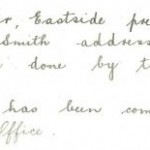 r, Eastside pre
Smith address
done by t
has been com
Office.